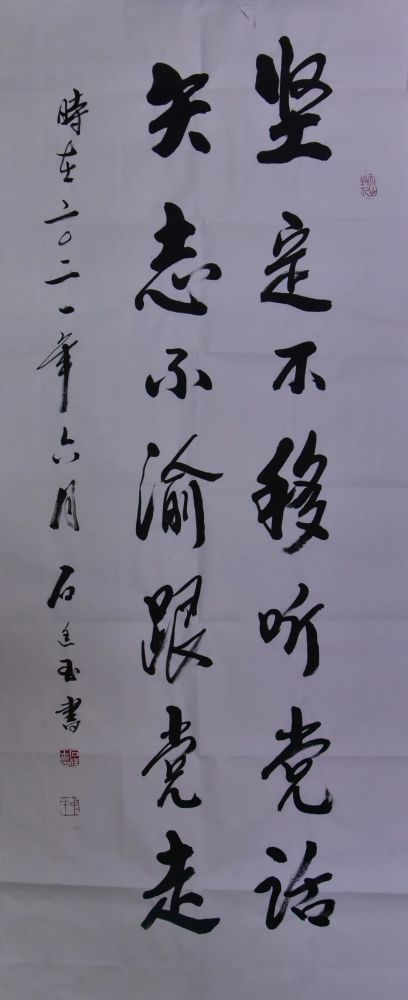 坚定不移听党话
矢志不渝跟党走
時在二〇二一年六月石玉書